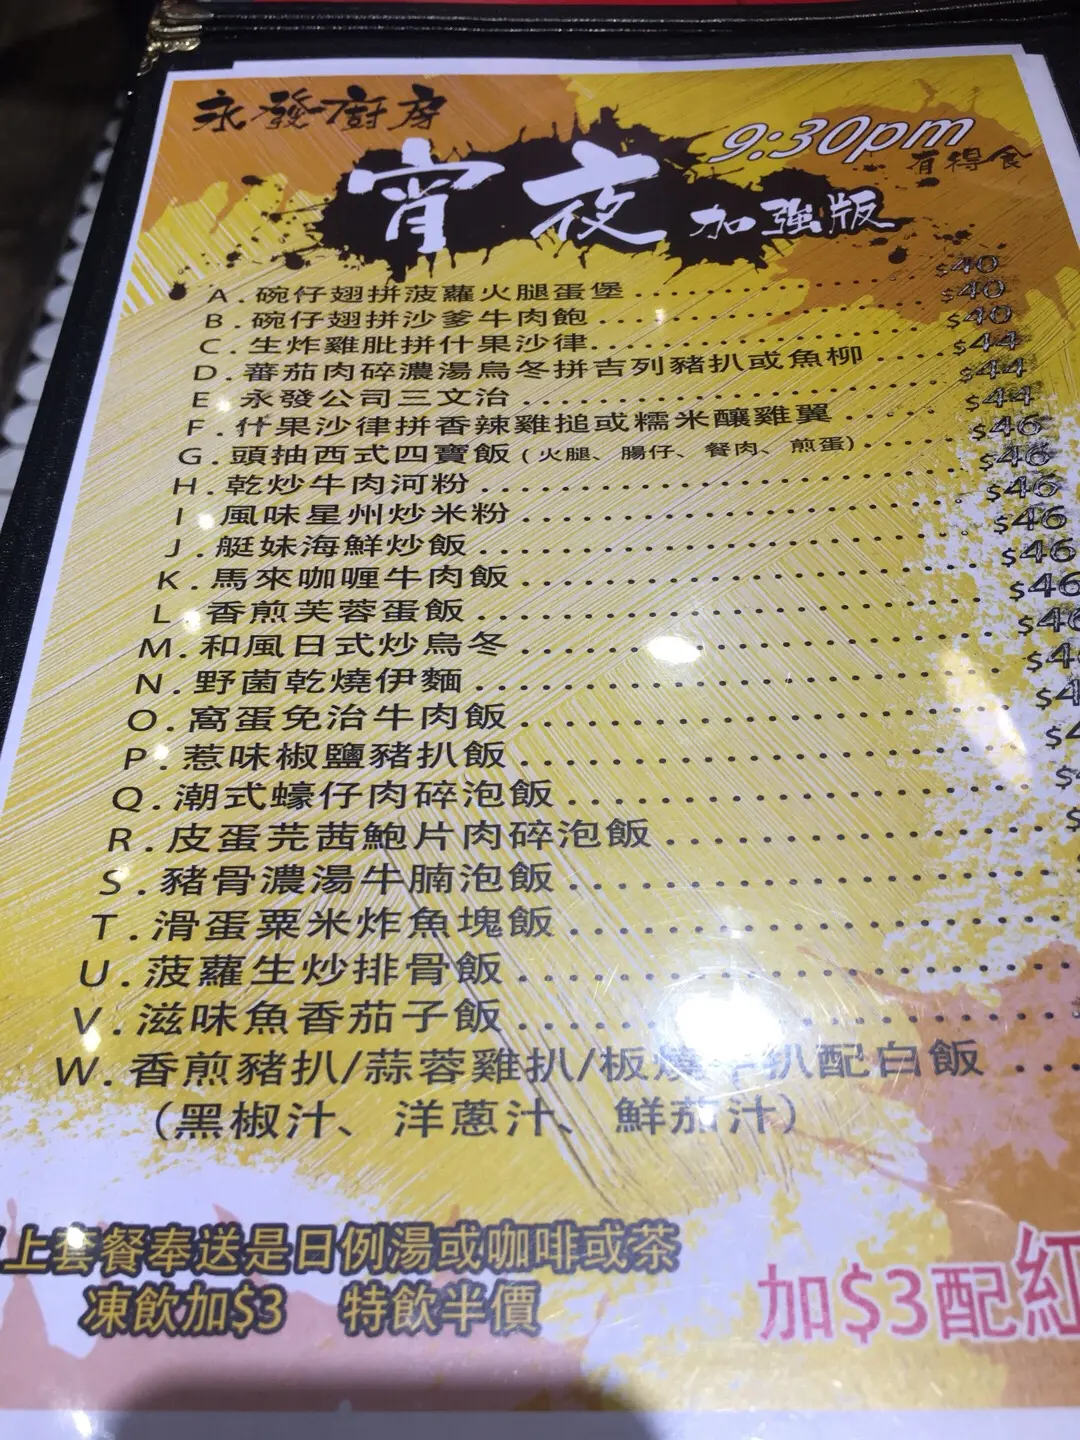 永發廚房
9:30pm
有得食
宵夜 加強版
A.碗仔翅拼菠蘿火腿蛋堡 $40
B.碗仔翅拼沙爹牛肉飽 $40
C.生炸雞肶拼什果沙律 $40
D.蕃茄肉碎濃湯烏冬拼吉列豬扒或魚柳 $44
E.永發公司三文治 $44
F.什果沙律拼香辣雞搥或糯米釀雞翼 $44
G.頭抽西式四寶飯(火腿、腸仔、餐肉、煎蛋) $46
H.乾炒牛肉河粉 $46
I.風味星州炒米粉 $46
J.艇妹海鮮炒飯 $46
K.馬來咖喱牛肉飯 $46
L.香煎芙蓉蛋飯 $46
M.和風日式炒烏冬
N.野菌乾燒伊麵
O.窩蛋免治牛肉飯
P.惹味椒鹽豬扒飯
Q.潮式蠔仔肉碎泡飯
R.皮蛋芫茜鮑片肉碎泡飯
S.豬骨濃湯牛腩泡飯
T.滑蛋粟米炸魚塊飯
U.菠蘿生炒排骨飯
V.滋味魚香茄子飯
W.香煎豬扒/蒜蓉雞扒/板燒牛扒配白飯
(黑椒汁、洋蔥汁、鮮茄汁)
上套餐奉送是日例湯或咖啡或茶
凍飲加$3 特飲半價
加$3配紅